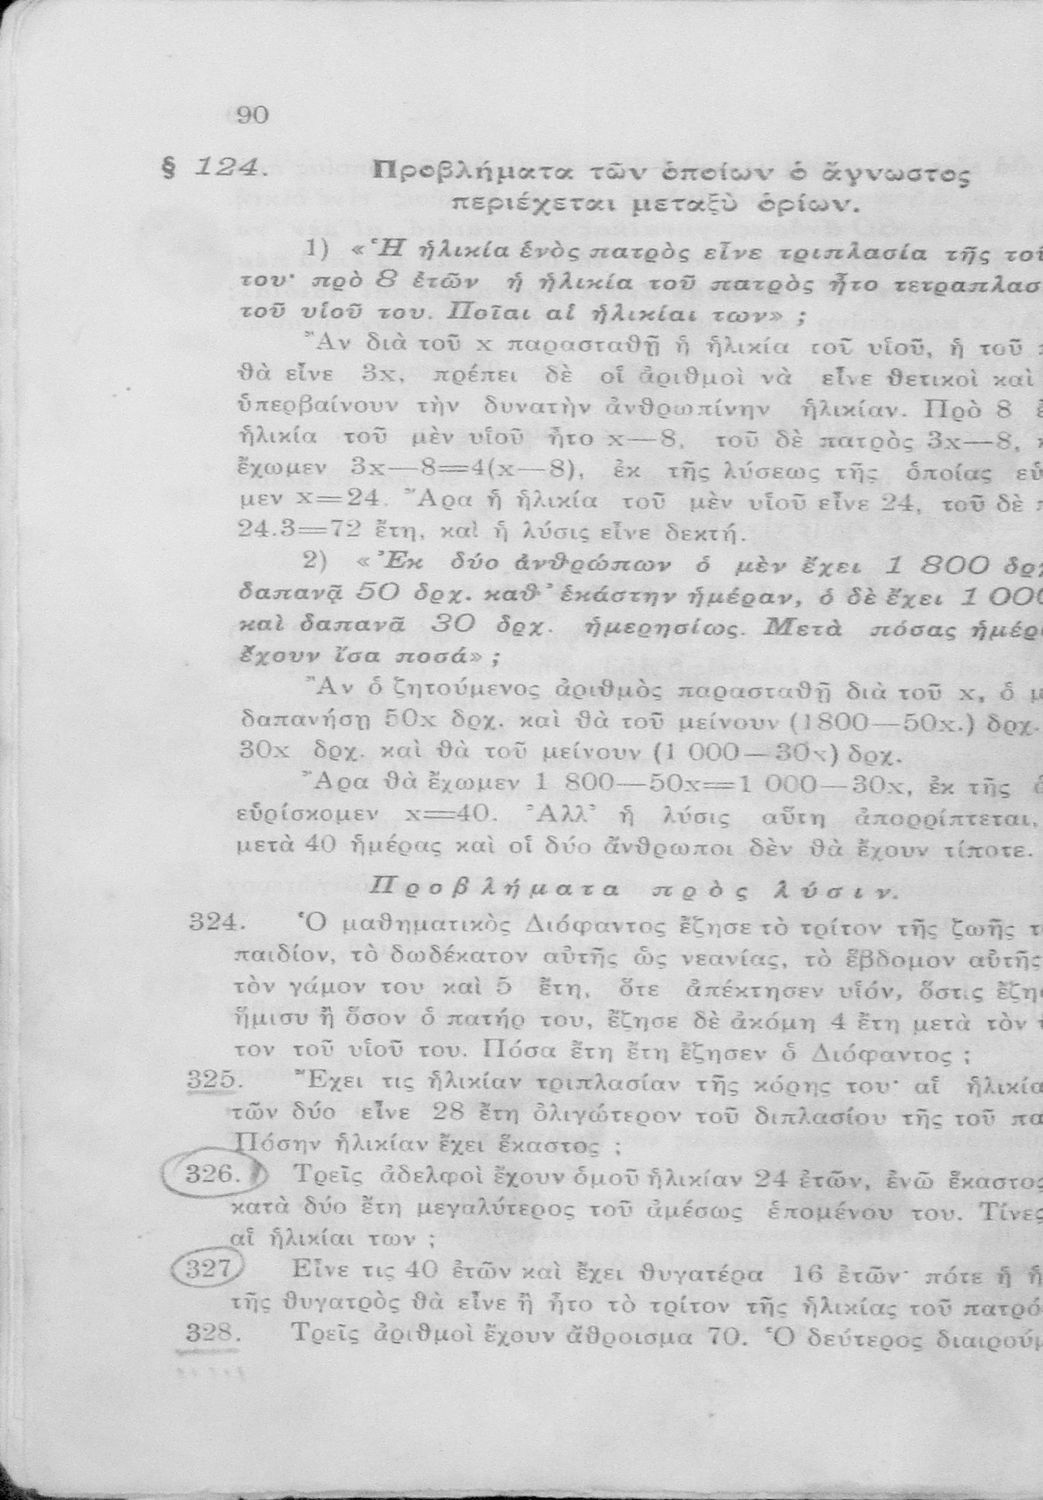 90
§ 124. Προβλήματα τῶν ὁποίων ὁ ἄγνωστος
περιέχεται μεταξὺ ὁρίων.
1) «Ἡ ἡλικία ἑνὸς πατρὸς εἶνε τριπλασία τῆς τοῦ
του· πρὸ 8 ἐτῶν ἡ ἡλικία τοῦ πατρὸς ἦτο τετραπλασ
τοῦ υἱοῦ του. Ποῖαι αἱ ἡλικίαι των» ;
Ἂν διὰ τοῦ x παρασταθῇ ἡ ἡλικία τοῦ υἱοῦ, ἡ τοῦ
θὰ εἶνε 3x, πρέπει δὲ οἱ ἀριθμοὶ νὰ εἶνε θετικοὶ καὶ
ὑπερβαίνουν τὴν δυνατὴν ἀνθρωπίνην ἡλικίαν. Πρὸ 8
ἡλικία τοῦ μὲν υἱοῦ ἦτο x—8, τοῦ δὲ πατρὸς 3x—8,
ἔχωμεν 3x—8=4(x—8), ἐκ τῆς λύσεως τῆς ὁποίας εὑ
μεν x=24. Ἄρα ἡ ἡλικία τοῦ μὲν υἱοῦ εἶνε 24, τοῦ δὲ
24.3=72 ἔτη, καὶ ἡ λύσις εἶνε δεκτή.
2) «Ἐκ δύο ἀνθρώπων ὁ μὲν ἔχει 1 800 δρχ
δαπανᾷ 50 δρχ. καθ' ἑκάστην ἡμέραν, ὁ δὲ ἔχει 1 000
καὶ δαπανᾶ 30 δρχ. ἡμερησίως. Μετὰ πόσας ἡμέρ
ἔχουν ἴσα ποσά» ;
Ἂν ὁ ζητούμενος ἀριθμὸς παρασταθῇ διὰ τοῦ x, ὁ μ
δαπανήσῃ 50x δρχ. καὶ θὰ τοῦ μείνουν (1800—50x.) δρχ.
30x δρχ. καὶ θὰ τοῦ μείνουν (1 000—30x) δρχ.
Ἄρα θὰ ἔχωμεν 1 800—50x=1 000—30x, ἐκ τῆς
εὑρίσκομεν x=40. Ἀλλ' ἡ λύσις αὕτη ἀπορρίπτεται,
μετὰ 40 ἡμέρας καὶ οἱ δύο ἄνθρωποι δὲν θὰ ἔχουν τίποτε.
Προβλήματα πρὸς λύσιν.
324. Ὁ μαθηματικὸς Διόφαντος ἔζησε τὸ τρίτον τῆς ζωῆς τ
παιδίον, τὸ δωδέκατον αὐτῆς ὡς νεανίας, τὸ ἕβδομον αὐτῆς
τὸν γάμον του καὶ 5 ἔτη, ὅτε ἀπέκτησεν υἱόν, ὅστις ἔζη
ἥμισυ ἢ ὅσον ὁ πατήρ του, ἔζησε δὲ ἀκόμη 4 ἔτη μετὰ τὸν
τον τοῦ υἱοῦ του. Πόσα ἔτη ἔτη ἔζησεν ὁ Διόφαντος ;
325. Ἔχει τις ἡλικίαν τριπλασίαν τῆς κόρης του· αἱ ἡλικία
τῶν δύο εἶνε 28 ἔτη ὀλιγώτερον τοῦ διπλασίου τῆς τοῦ πα
Πόσην ἡλικίαν ἔχει ἕκαστος ;
326. Τρεῖς ἀδελφοὶ ἔχουν ὁμοῦ ἡλικίαν 24 ἐτῶν, ἐνῶ ἕκαστος
κατὰ δύο ἔτη μεγαλύτερος τοῦ ἀμέσως ἑπομένου του. Τίνες
αἱ ἡλικίαι των ;
327 Εἶνε τις 40 ἐτῶν καὶ ἔχει θυγατέρα 16 ἐτῶν· πότε ἡ ἡ
τῆς θυγατρὸς θὰ εἶνε ἢ ἦτο τὸ τρίτον τῆς ἡλικίας τοῦ πατρό
328. Τρεῖς ἀριθμοὶ ἔχουν ἄθροισμα 70. Ὁ δεύτερος διαιρούμ